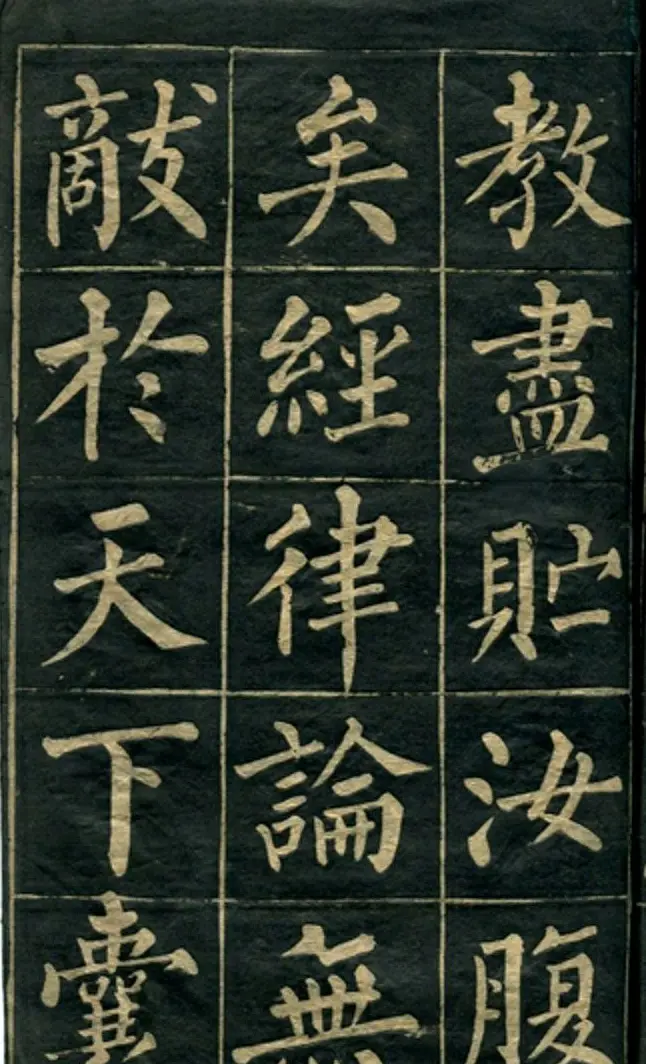 教盡貯汝腹
矣經律論無
敵於天下囊